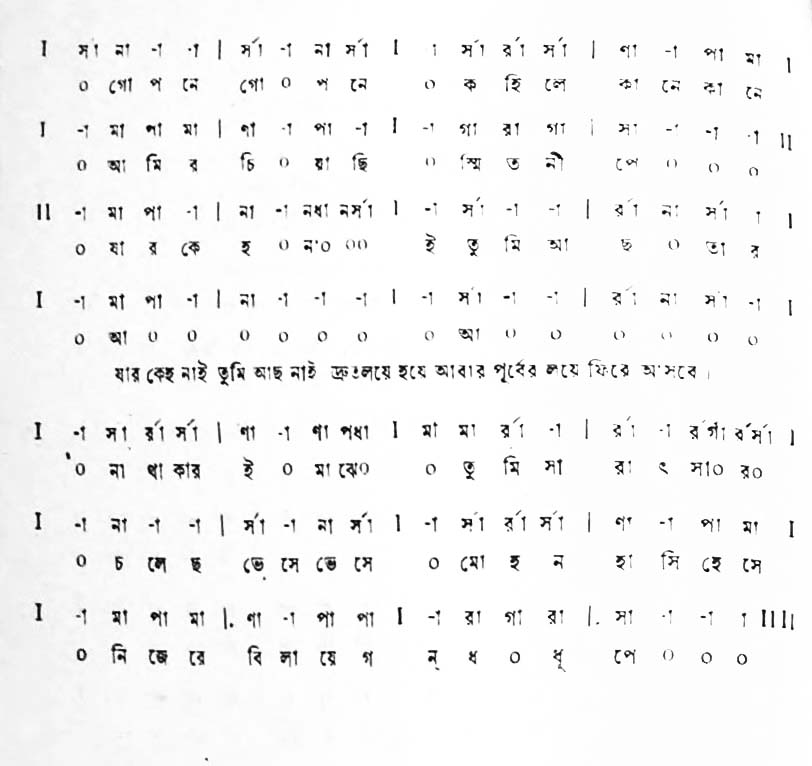 I সা না -া -া | র্সা -া না র্সা I া র্সা র্রা র্সা | ণা -া পা মা I
০ গো প নে গো ০ প নে ০ ক হি লে কা নে কা নে
I -া মা পা মা | ণা -া পা -া I -া গা রা গা | সা -া -া -া II
০ আ মি র চি ০ য়া ছি ০ স্মি ত নী পে ০ ০ ০
II -া মা পা -া | না -া নধা নর্সা I -া র্সা -া -া | র্রা না র্সা া I
০ যা র কে হ ০ ন'০ ০০ ই তু মি আ ছ ০ তা র
I -া মা পা -া | না -া -া -া I -া র্সা -া -া | র্রা না র্সা -া I
০ আ ০ ০ ০ ০ ০ ০ ০ আ ০ ০ ০ ০ ০ ০
যার কেহ নাই তুমি আছ নাই দ্রুতলয়ে হয়ে আবার পূর্বের লয়ে ফিরে আসবে।
I -া সা র্রা র্সা | ণা -া ণা পধা I মা মা র্রা -া | র্রা -া র্র্গা র্র্সা I
০ না থা কার ই ০ মা ঝে০ ০ তু মি সা রা ৎ সা০ র০
I -া না -া -া | র্সা -া না র্সা I -া র্সা র্রা র্সা | ণা -া পা মা I
০ চ লে ছ ভে সে ভে সে ০ মো হ ন হা সি হে সে
I -া মা পা মা |. ণা -া পা পা I -া রা গা রা |. সা -া -া া IIII
০ নি জে রে বি লা য়ে গ ন্ ধ ০ ধূ পে ০ ০ ০